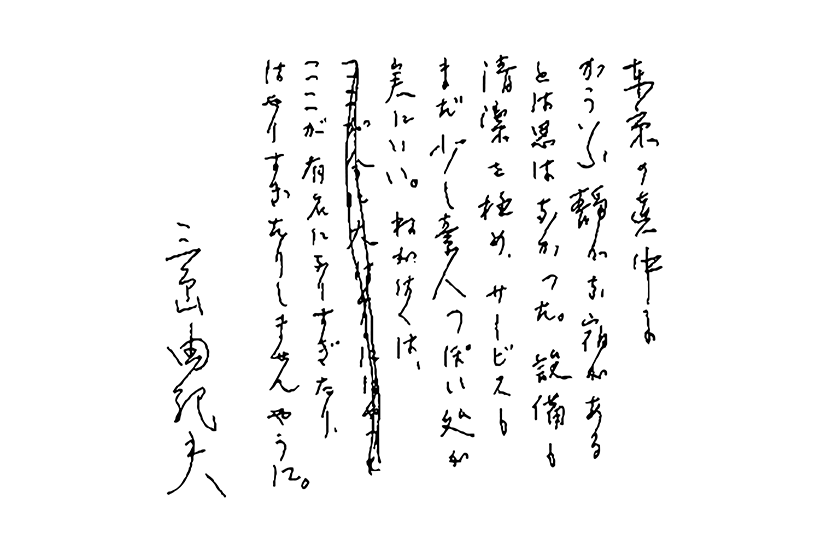 東京の真中に
かういふ静かな宿がある
とは思はなかつた。設備も
清潔を極め、サービスも
まだ少し素人つぽい処が
実にいい。ねがはくは、
ここが有名になりすぎたり、
はやりすぎたりしませんやうに。
三島由紀夫